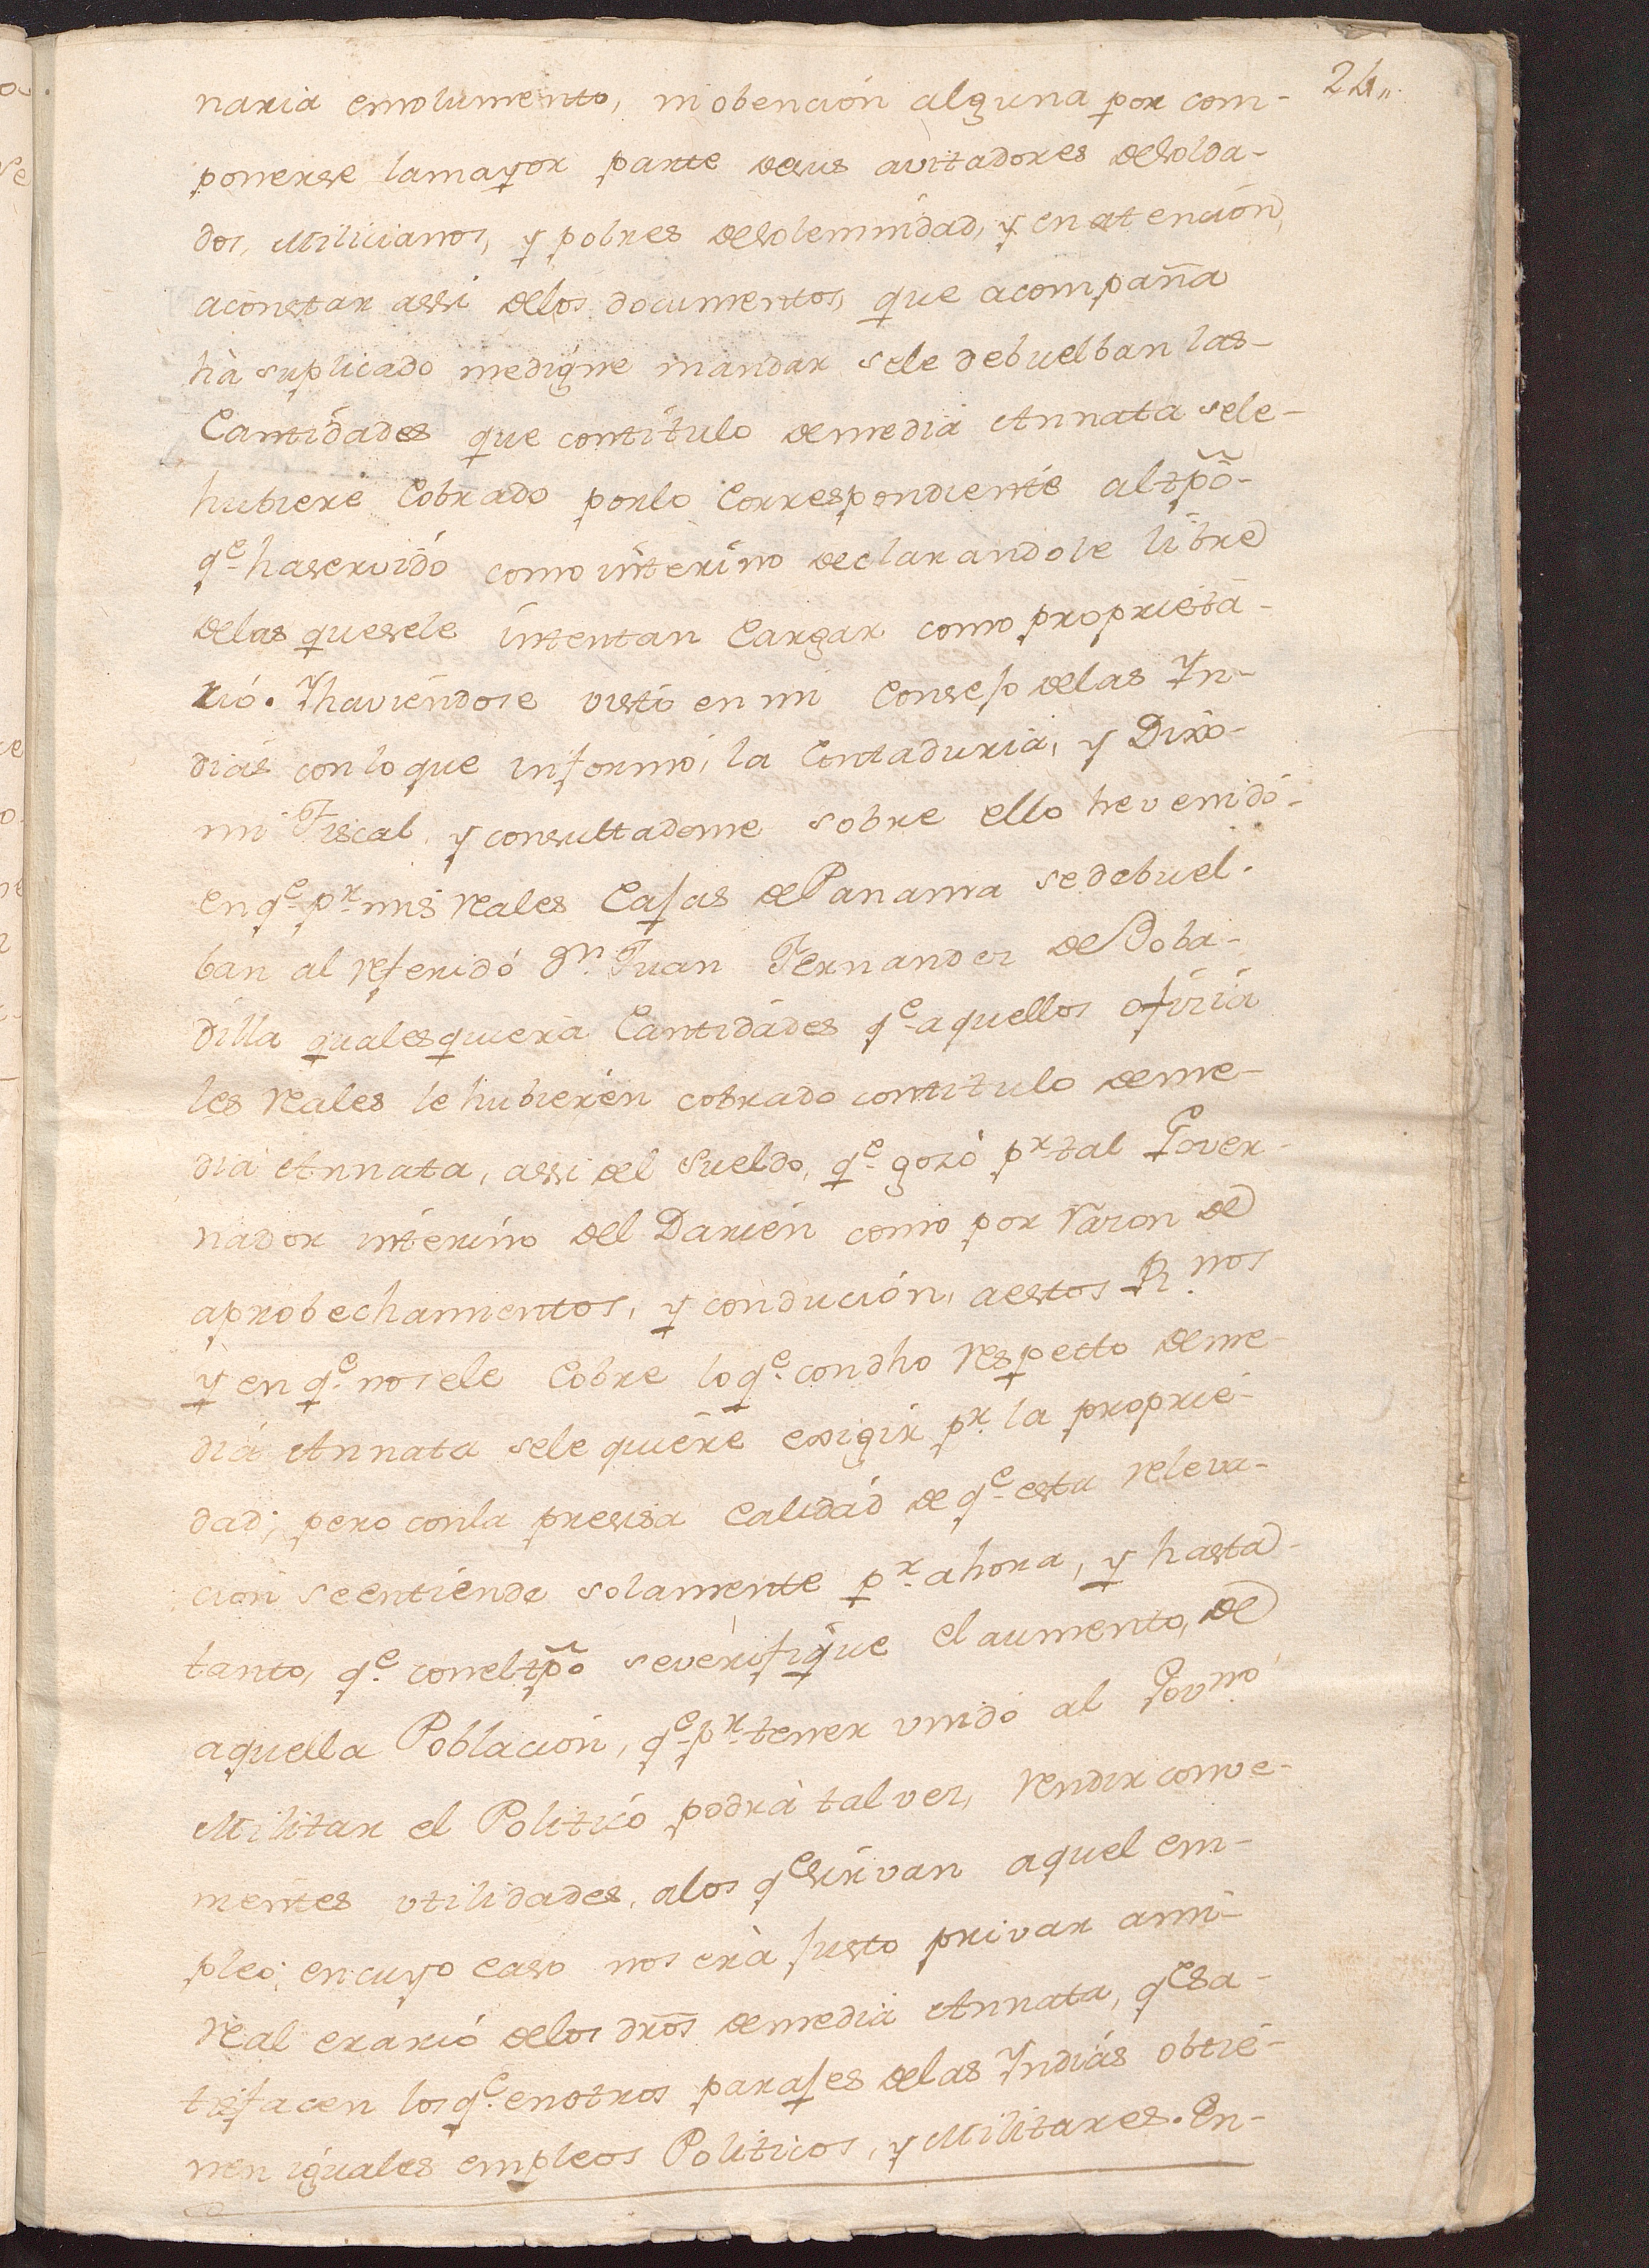 24,,.
naria emolumento, ni obencion alguna por com-
ponerse lamayor parte desus avitadores desolda-
dos, Milicianos, y pobres desolemnidad, y en atencion,
aconstar assi delos documentos, que acompaña
hà suplicado medigne mandar sele debuelban las-
Cantidades que contitulo demedia Annata sele-
hubiere Cobrado porlo Correspondiente altpõ-
qe. haservido como interino declarandole libre
delas quesele intentan Cargar como proprieta-
rió. Yhaviendose visto en mi Consejo delas Yn-
dias conloque informó, la Contaduria, y Dixo-
mi Fiscal, y consultadome sobre ello hevenido-
enqe. pr. mis reales Cajas de Panama sedebuel-
ban al referidó Dn. Juan Fernandez de Boba-
dilla qualesquiera Cantidades qe. aquellos ofizia
les reales le hubieren cobrado contitulo deme-
dia Annata, assi del Sueldo, qe. gozó pr. tal Gover-
nador interino del Darien como por razon de
aprobechamientos, y condución, aestos Rnos.
y en qe. nosele Cobre loqe. condho respecto deme-
dia Annata sele quiere exigir pr. la proprie-
dad; pero conla precisa Calidad de qe. esta releva-
cion seentienda solamente pr. ahora, y hasta-
tanto, qe. coneltpõ severifique el aumento, de
aquella Poblacion, qe. pr. tener unido al Govno.
Militar el Politicó podrà talvez, rendir conve-
nientes utilidades, alos qe sirvan aquel em-
pleo; encuyo caso noserà justo privar ami-
real erarió delos dros̃ demedia Annata, qe sa-
tisfacen losqe. enotros parajes delas Yndias obtie-
nen iguales empleos Politicos, y Militares. En-